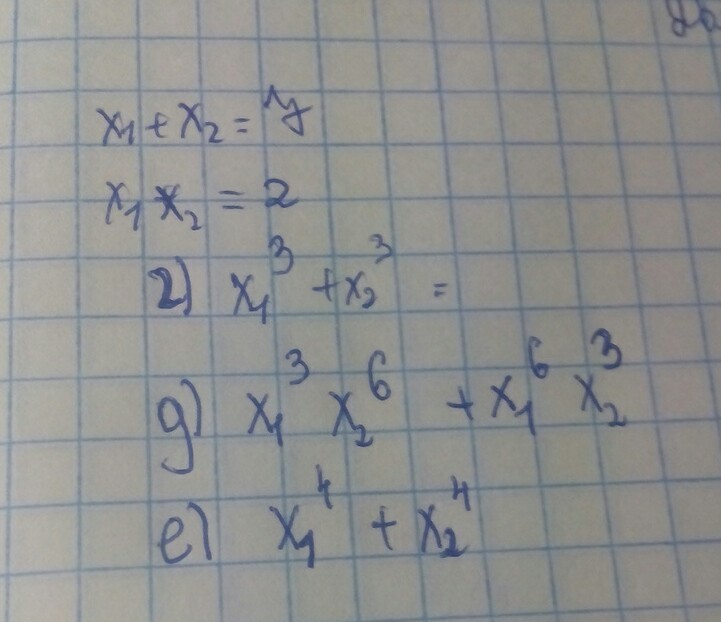 x₁ + x₂ = 7
x₁ x₂ = 2
г) x₁³ + x₂³ =
д) x₁³ x₂⁶ + x₁⁶ x₂³
е) x₁⁴ + x₂⁴